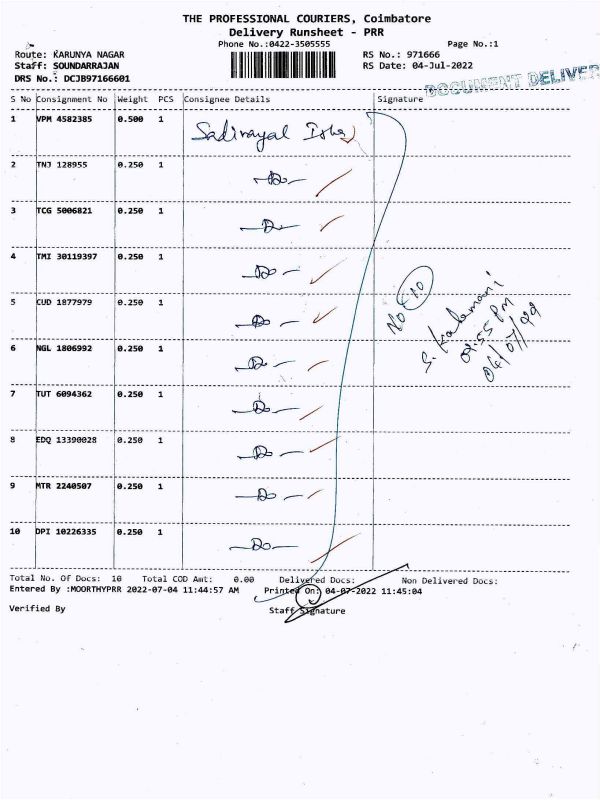 THE PROFESSIONAL COURIERS, Coimbatore
Delivery Runsheet - PRR
Phone No.:0422-3505555
Page No.:1
Route: KARUNYA NAGAR
RS No.: 971666
Staff: SOUNDARRAJAN
RS Date: 04-Jul-2022
DRS No.: DCJB97166601
DOCUMENT DELIVER
S No Consignment No Weight PCS Consignee Details Signature
1 VPM 4582385 0.500 1
2 TNJ 128955 0.250 1 -Do-
3 TCG 5006821 0.250 1 -Do-
4 TMI 30119397 0.250 1 -Do-
5 CUD 1877979 0.250 1 -Do-
6 NGL 1806992 0.250 1 -Do-
7 TUT 6094362 0.250 1 -Do-
8 EDQ 13390028 0.250 1 -Do-
9 MTR 2240507 0.250 1 -Do-
10 DPI 10226335 0.250 1 -Do-
No - 10
S. Kalamani
02:55 PM
Total No. Of Docs: 10 Total COD Amt: 0.00 Delivered Docs: Non Delivered Docs:
Entered By :MOORTHYPRR 2022-07-04 11:44:57 AM Printed On: 04-07-2022 11:45:04
Verified By Staff Signature